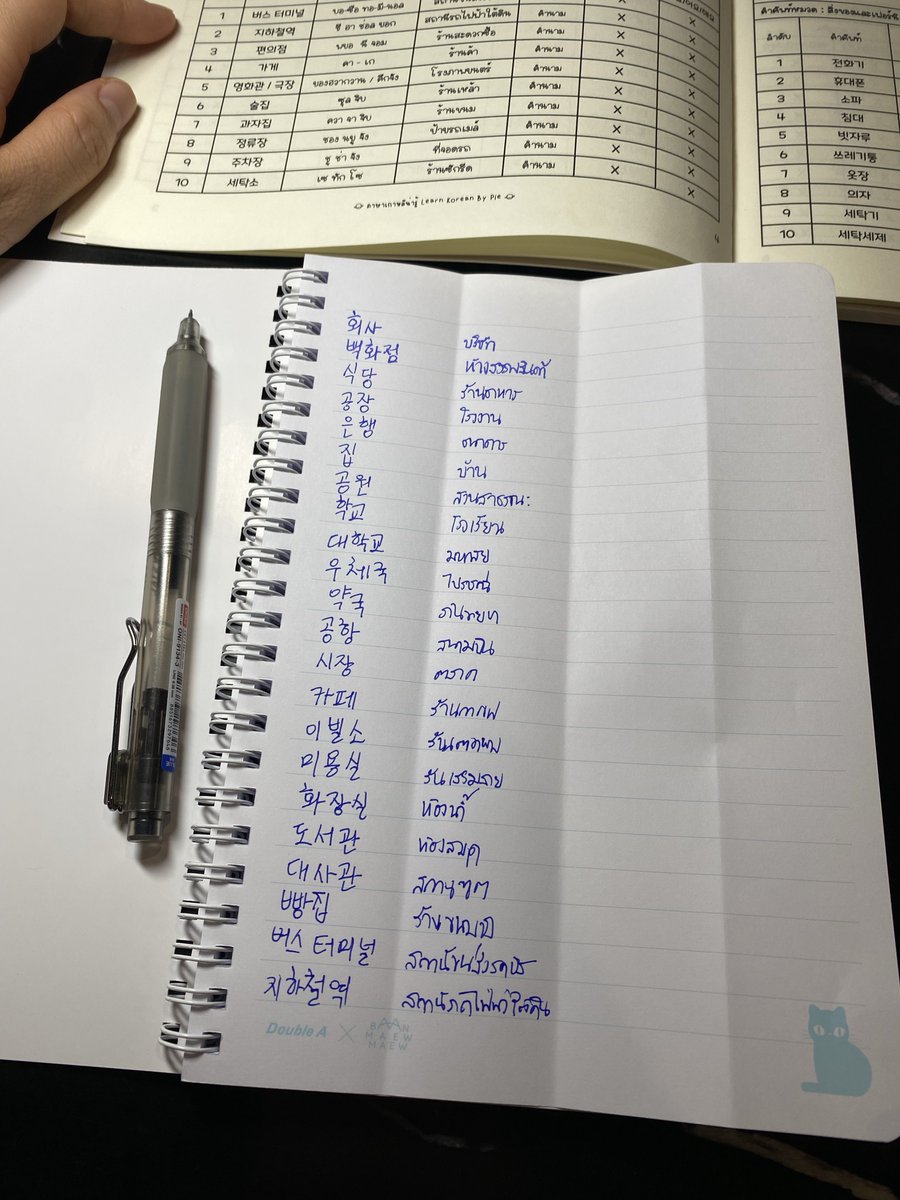 1 버스 터미널 บอ-ซือ ทอ-มิ-นอล คำนาม ×
2 지하철역 ชี ฮา ชอล ยอก สถานีรถไฟฟ้าใต้ดิน คำนาม × ×
3 편의점 พยอ นี จอม ร้านสะดวกซื้อ คำนาม × ×
4 가게 คา - เก ร้านค้า คำนาม × ×
5 영화관 / 극장 ยองฮวากวาน / คึกจัง โรงภาพยนตร์ คำนาม × ×
6 술집 ซุล จิบ ร้านเหล้า คำนาม × ×
7 과자집 ควา จา จิบ ร้านขนม คำนาม × ×
8 정류장 ชอง นยู จัง ป้ายรถเมล์ คำนาม × ×
9 주차장 ชู ช่า จัง ที่จอดรถ คำนาม × ×
10 세탁소 เซ ทัก โซ ร้านซักรีด คำนาม × ×
ภาษาเกาหลีน่ารู้ Learn Korean By Pie
คำศัพท์หมวด : สิ่งของและเฟอร์นิ
ลำดับ คำศัพท์
1 전화기
2 휴대폰
3 소파
4 침대
5 빗자루
6 쓰레기통
7 옷장
8 의자
9 세탁기
10 세탁세제
회사 บริษัท
백화점 ห้างสรรพสินค้า
식당 ร้านอาหาร
공장 โรงงาน
은행 ธนาคาร
집 บ้าน
공원 สวนสาธารณะ
학교 โรงเรียน
대학교 มหาลัย
우체국 ไปรษณีย์
약국 ร้านขายยา
공항 สนามบิน
시장 ตลาด
카페 ร้านกาแฟ
이빌소 ร้านตัดผม
미용실 ร้านเสริมสวย
화장실 ห้องน้ำ
도서관 ห้องสมุด
대사관 สถานทูต
빵집 ร้านขนมปัง
버스 터미널 สถานีขนส่งรถบัส
지하철역 สถานีรถไฟฟ้าใต้ดิน
Double A × BAAN MAEW MAEW
UNI-9134-3